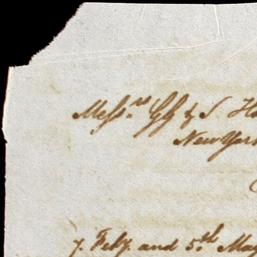 Messrs GG & S. Ho
New York
7. Feby. and 5th May